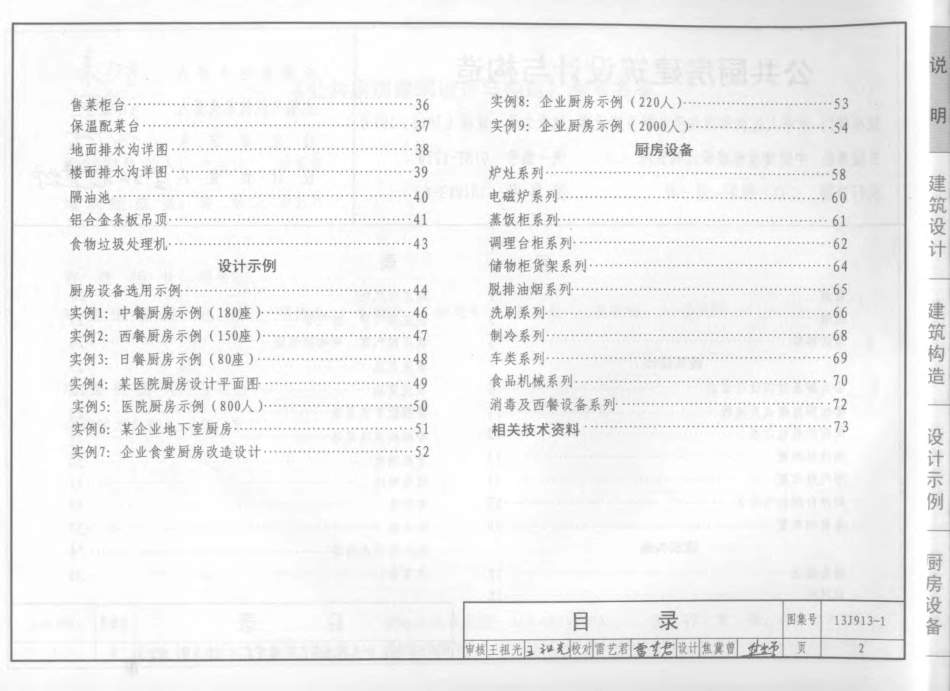 售菜柜台 36
保温配菜台 37
地面排水沟详图 38
楼面排水沟详图 39
隔油池 40
铝合金条板吊顶 41
食物垃圾处理机 43
设计示例
厨房设备选用示例 44
实例1: 中餐厨房示例(180座) 46
实例2: 西餐厨房示例(150座) 47
实例3: 日餐厨房示例(80座) 48
实例4: 某医院厨房设计平面图 49
实例5: 医院厨房示例(800人) 50
实例6: 某企业地下室厨房 51
实例7: 企业食堂厨房改造设计 52
实例8: 企业厨房示例(220人) 53
实例9: 企业厨房示例(2000人) 54
厨房设备
炉灶系列 58
电磁炉系列 60
蒸饭柜系列 61
调理台柜系列 62
储物柜货架系列 64
脱排油烟系列 65
洗刷系列 66
制冷系列 68
车类系列 69
食品机械系列 70
消毒及西餐设备系列 72
相关技术资料 73
目 录 图集号 13J913-1
审核 王祖光 校对 雷艺君 雷艺君 设计 焦冀曾 页 2
说明
建筑设计
建筑构造
设计示例
厨房设备